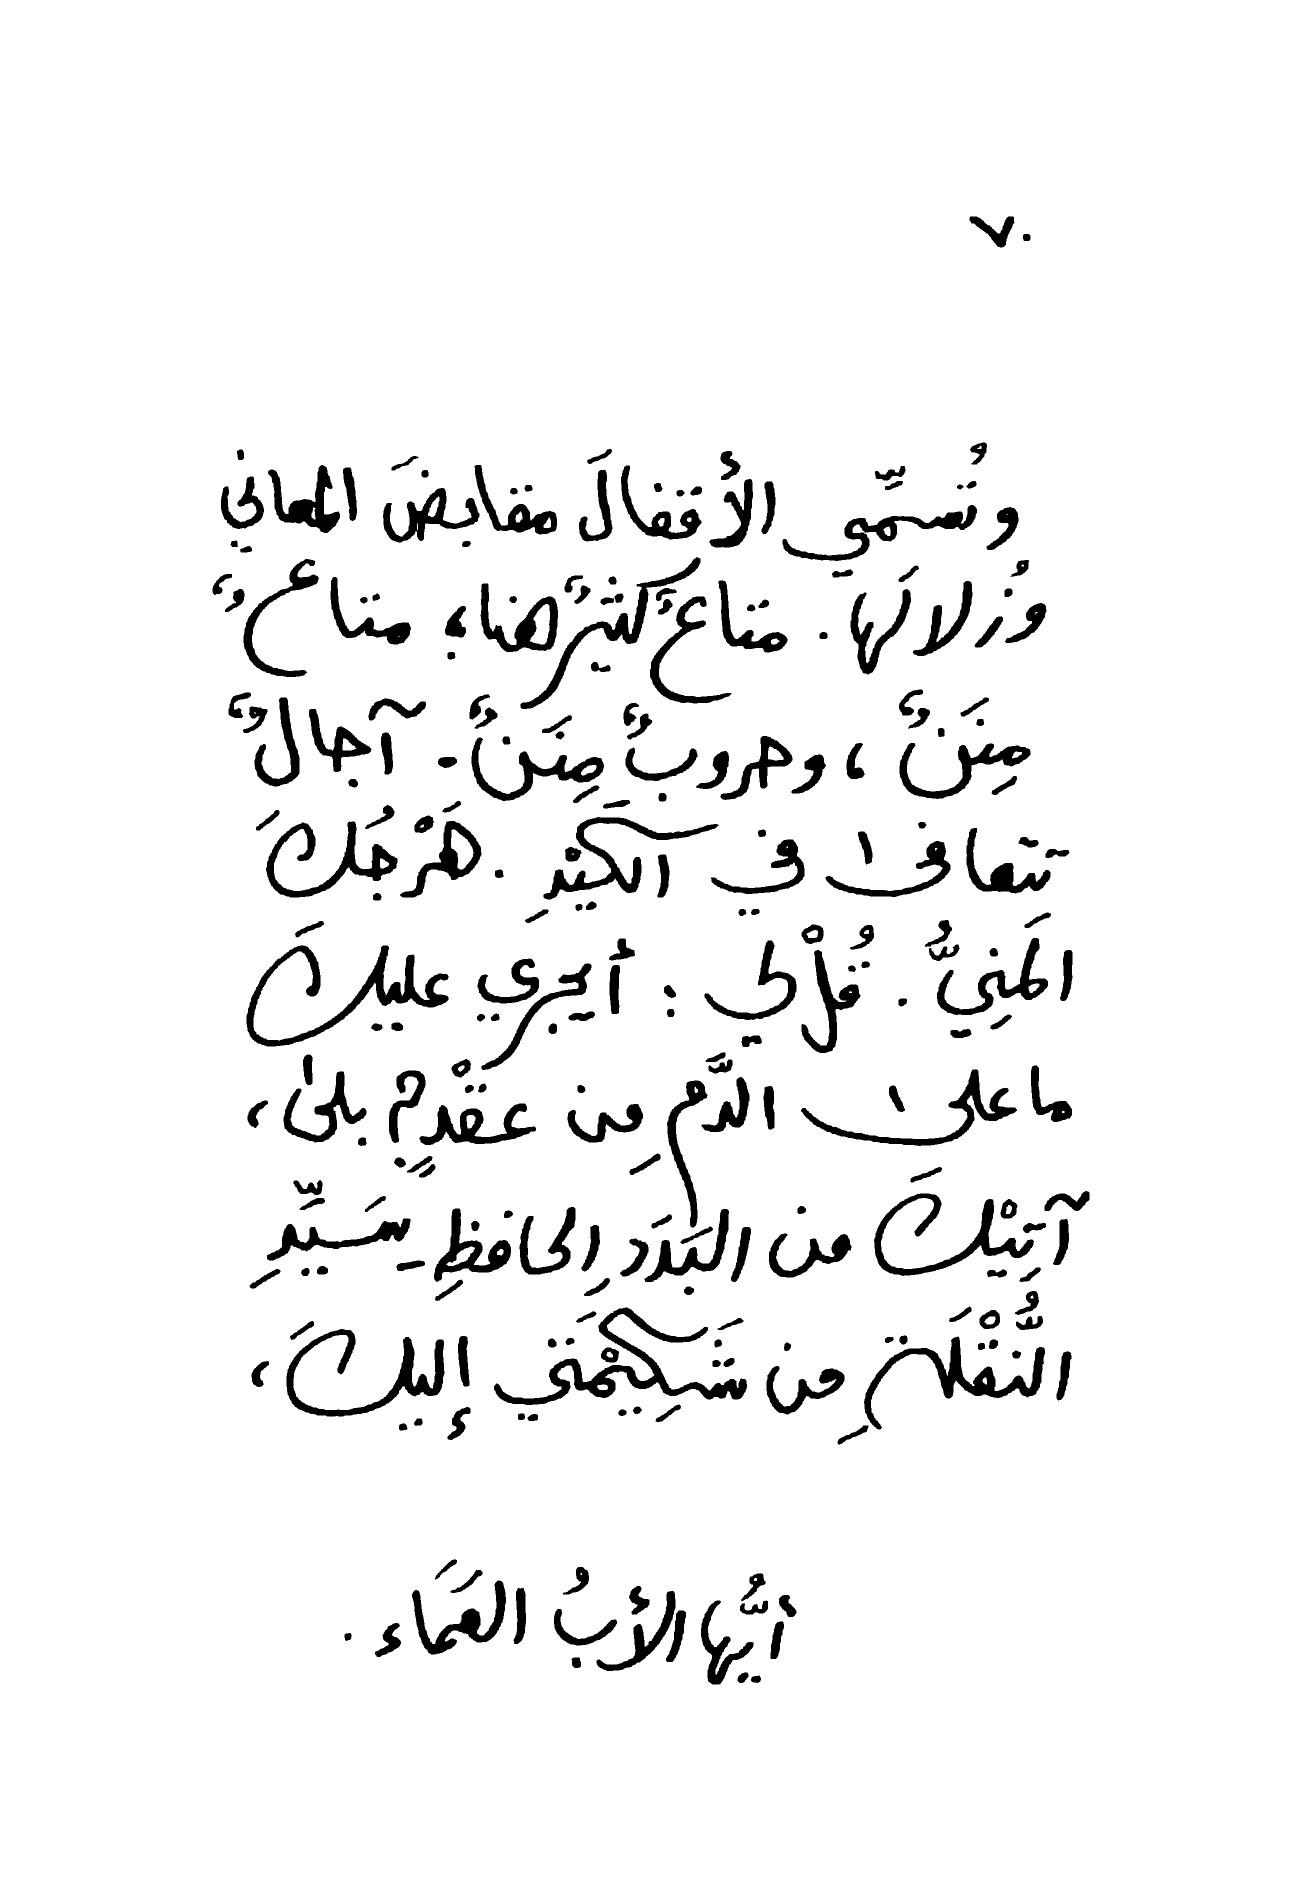 ٧٠
وتُسمِّي الأقفالَ مقابضَ المعاني
وزُلالَها. متاعٌ كثيرٌ هنا، متاعٌ
مِنَنٌ، وحروبٌ مِنَنٌ. آجالٌ
تتعافى في الكَيْدِ. هَرْجُكَ
المَنِيُّ. قُلْ لي: أيجري عليكَ
ما على الدَّمِ من عقْدٍ؟ بلى،
آتِيْكَ من البَدَدِ الحافظِ سَيِّدِ
النُّقْلَةِ من شَكِيْمَتي إليكَ،
أيُّها الأبُ العَمَاء.